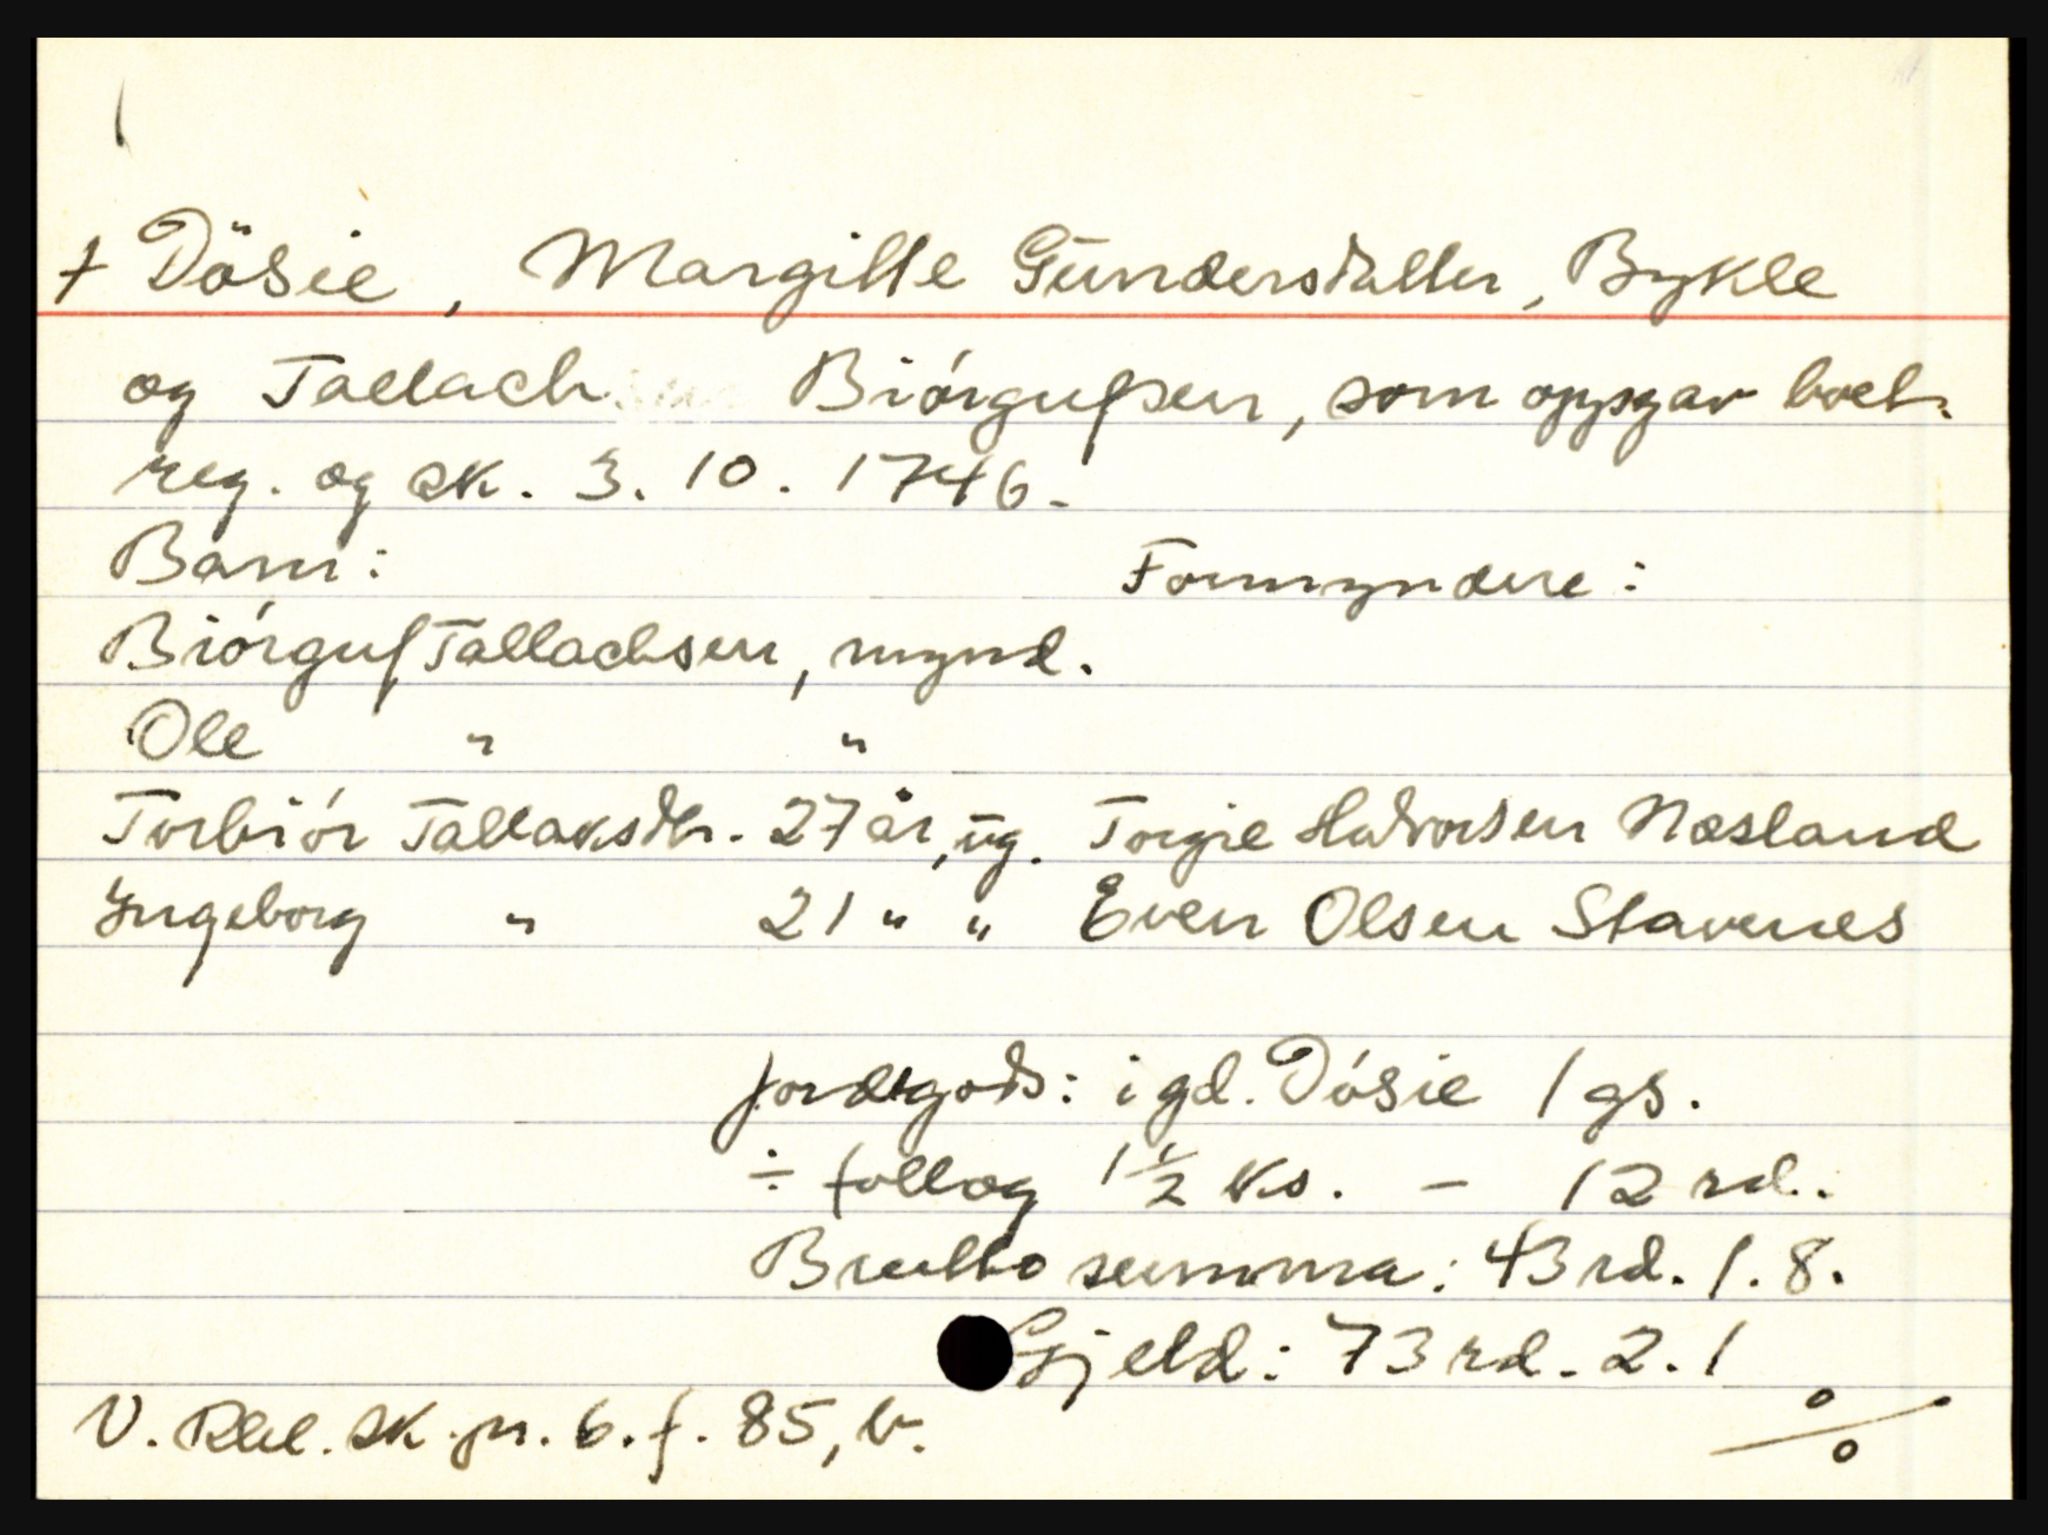 † Dösie, Margitte Gundersdatter, Bykle
og Tallach Biórgufsen, som oppgav boets
reg. og sk. 3. 10. 1746.
Barn: Formyndere:
Biórguf Tallachsen, mynd.
Ole " "
Torbiór Tallaksdtr. 27 år, ug. Torgie Halvorsen Næsland
Ingeborg " 21 " " Even Olsen Stavenes
Jordegods: i gd. Dósie 1 gs.
÷ follog 1½ ks. - 12 rd.
Brutto summa: 43 rd. 1. 8.
Gjeld: 73 rd. 2. 1
V. Rbl. sk. pr. 6. f. 85, b.
%